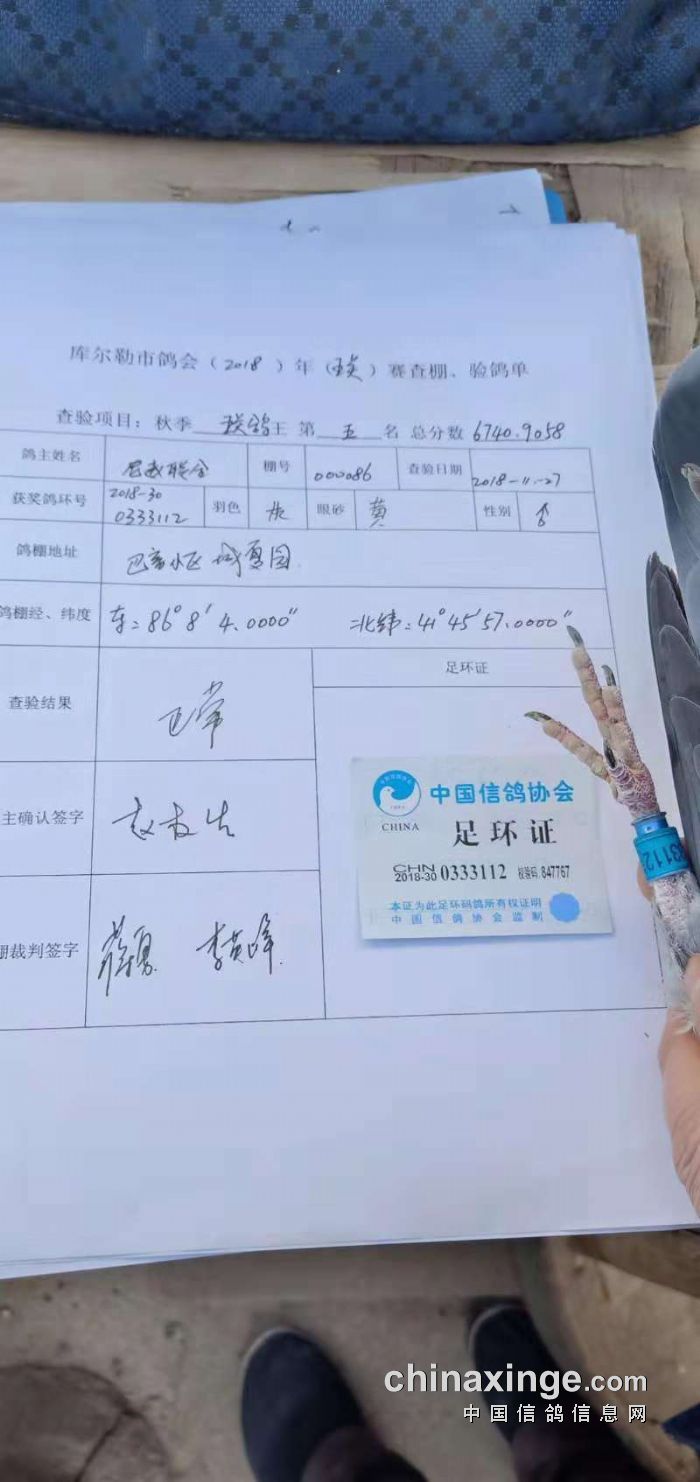 库尔勒市鸽会（2018）年（）赛查棚、验鸽单
查验项目：秋季 鸽王 第 五 名 总分数 6740.9058
鸽主姓名 棚号 000086 查验日期 2018-11-27
获奖鸽环号 2018-30 0333112 羽色 灰 眼砂 黄 性别 ♂
鸽棚地址 小区
鸽棚经、纬度 东：86°8′4.0000″ 北纬：41°45′57.0000″
查验结果 正常 足环证
主确认签字
棚裁判签字
中国信鸽协会
CHINA
足环证
CHN
2018-30 0333112 校验码 847767
本证为此足环码鸽所有权证明
中国信鸽协会监制
33112
chinaxinge.com
中国信鸽信息网